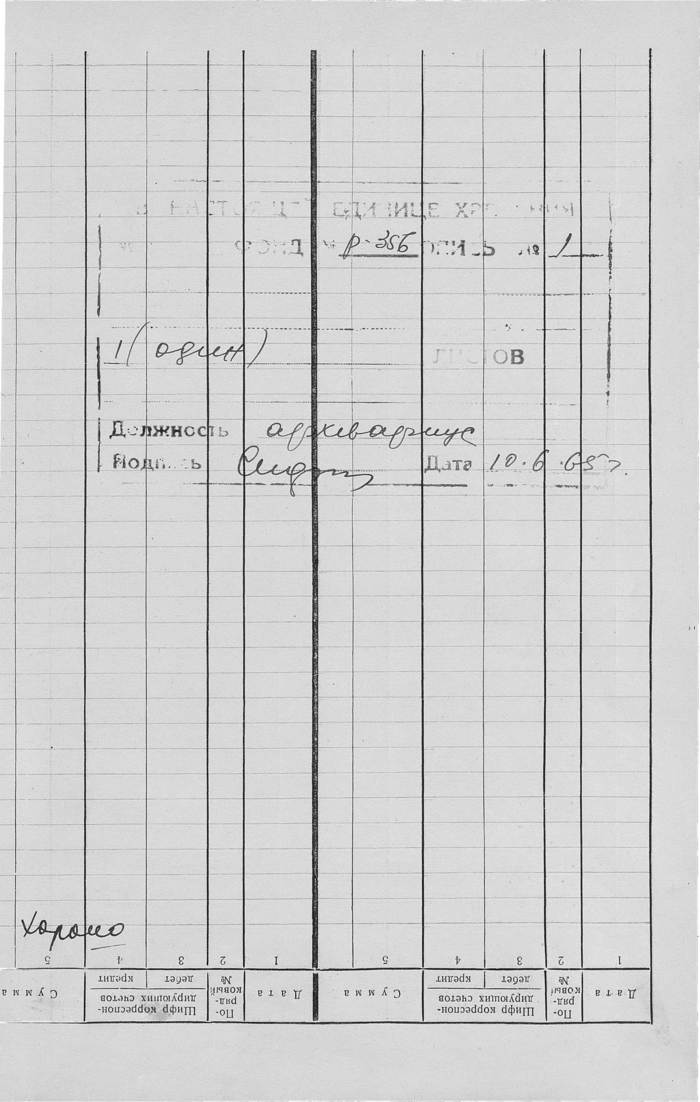 В НАСТОЯЩЕЙ ЕДИНИЦЕ ХРАНЕНИЯ
№ ФОНД № Р-356 ОПИСЬ № 1
1 (один) ЛИСТОВ
Должность архивариус
Подпись Дата 10.6.65 г.
Хорошо
5 4 3 2 1 5 4 3 2 1
Сумма
кредит
дебет
Шифр корреспон-
дирующих счетов
По-
ряд-
ковый
№
Дата
Сумма
кредит
дебет
Шифр корреспон-
дирующих счетов
По-
ряд-
ковый
№
Дата